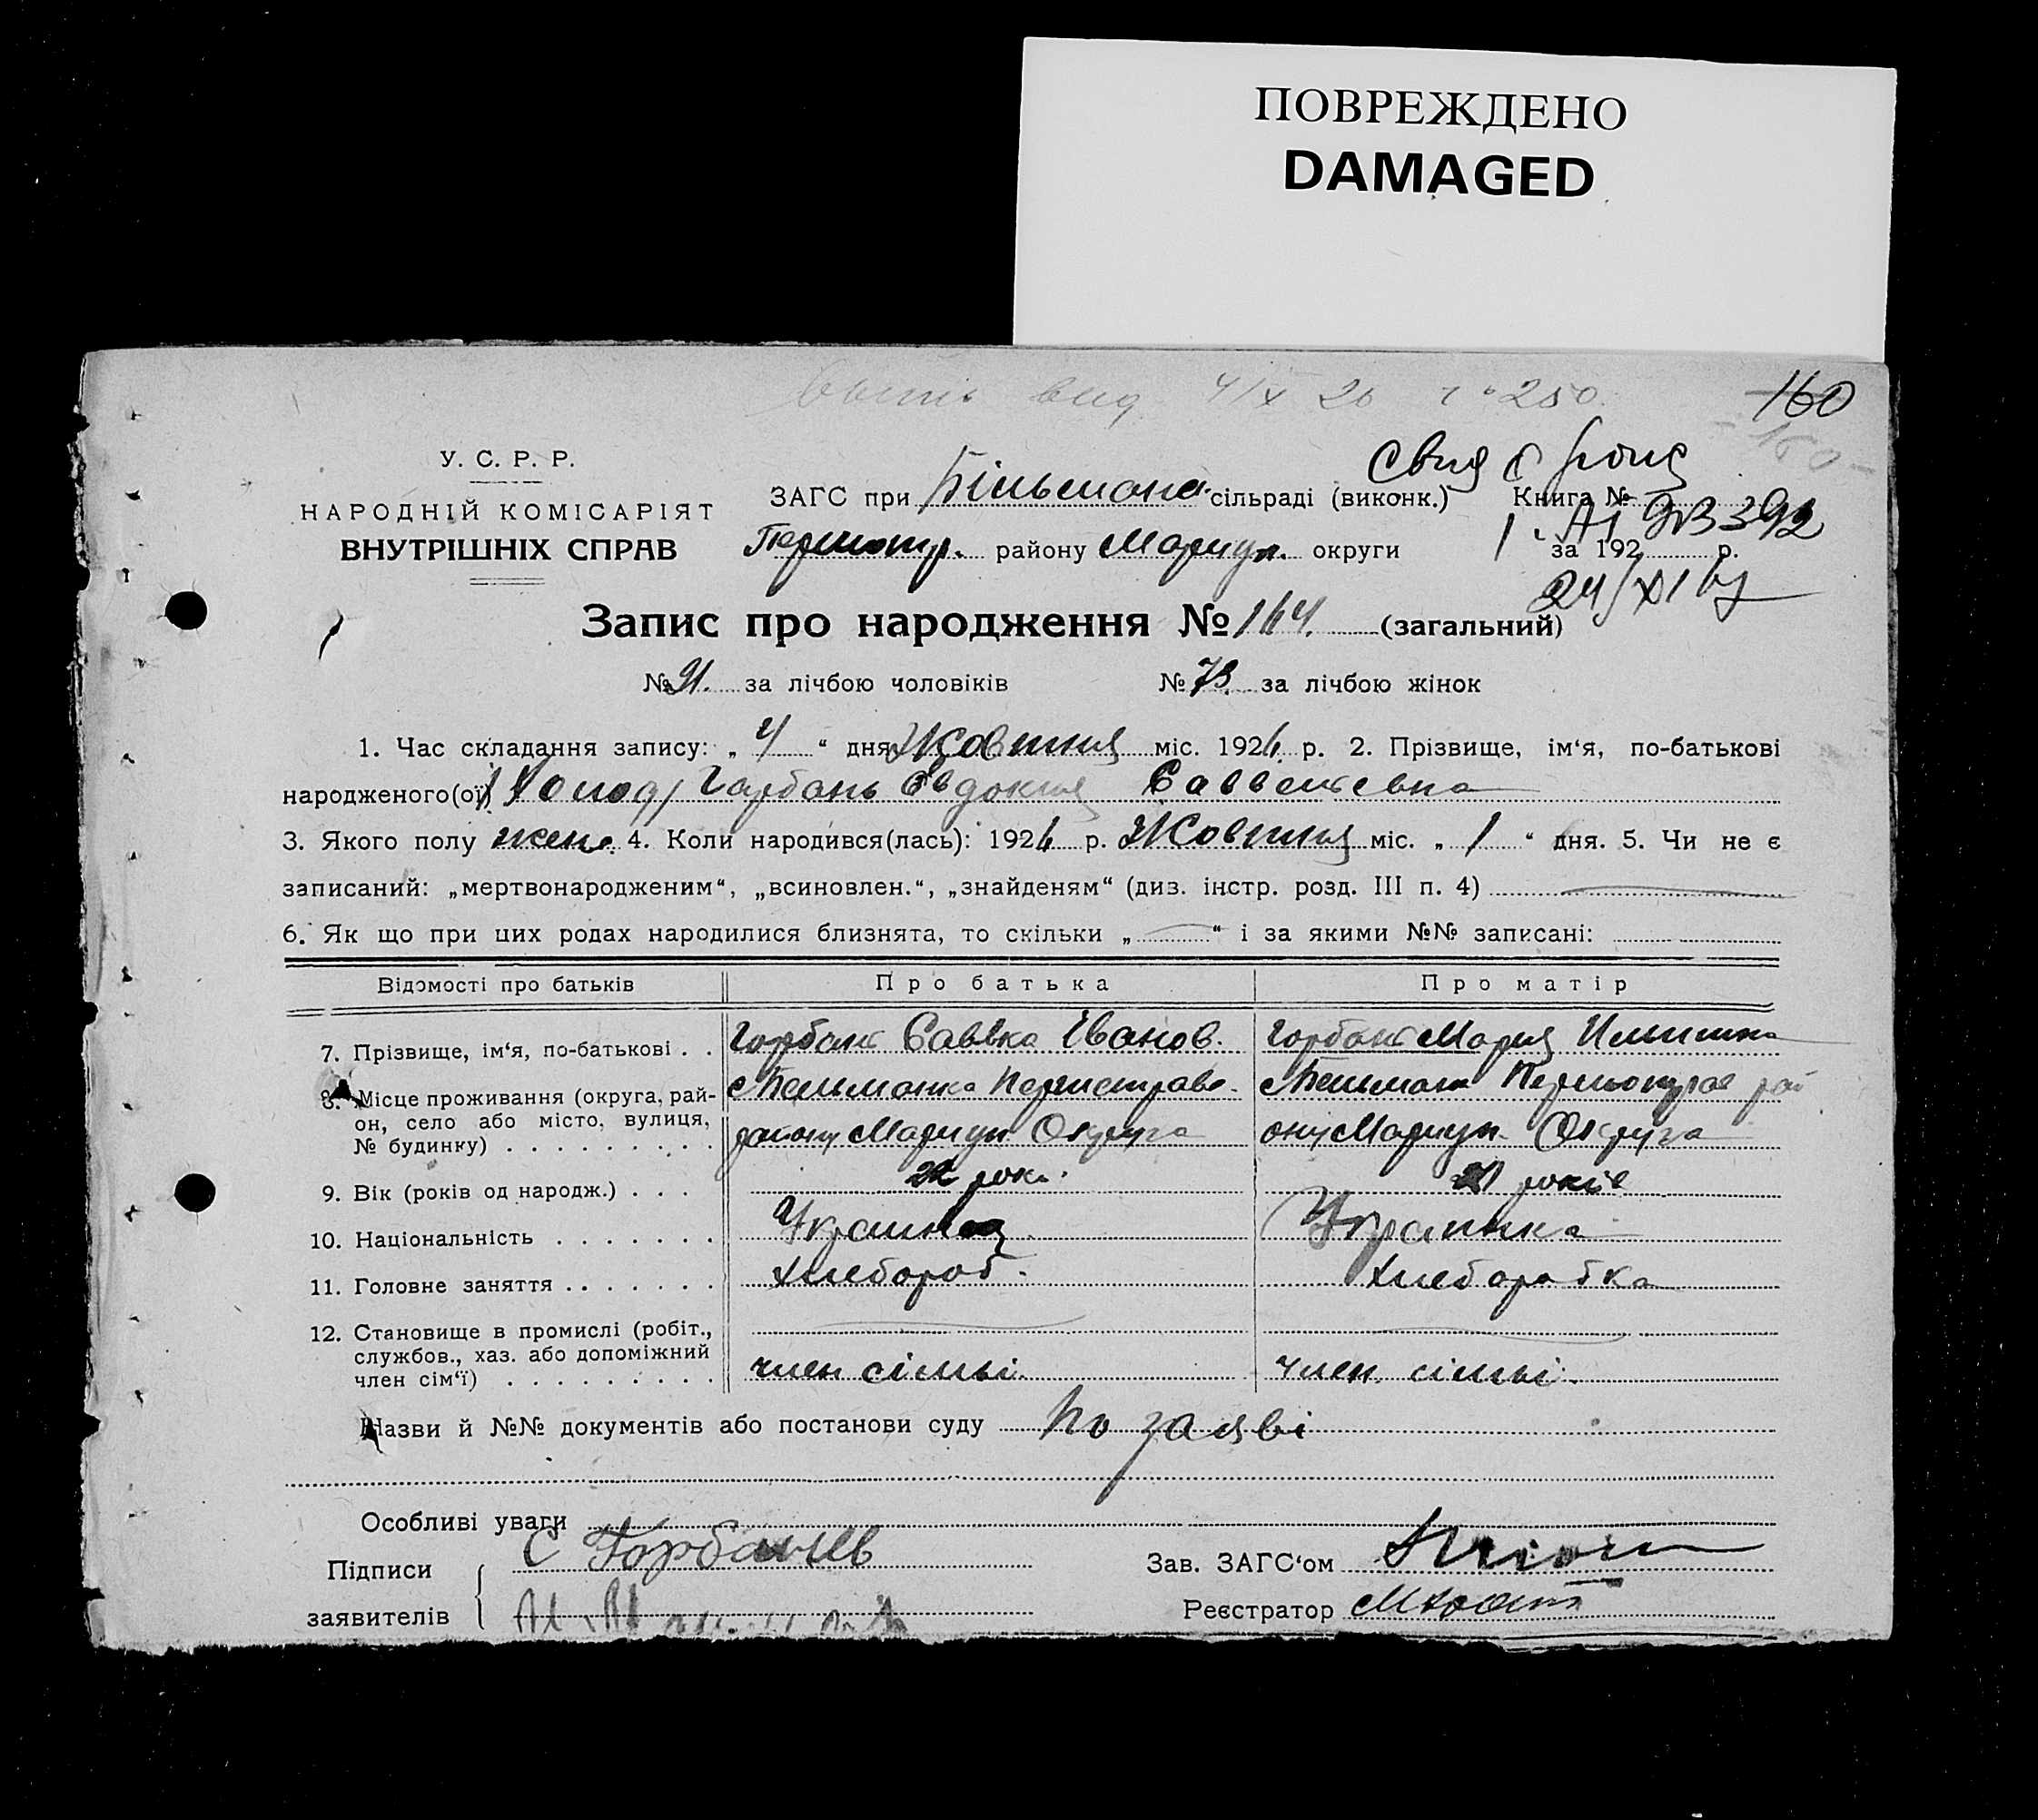 ПОВРЕЖДЕНО
DAMAGED
вид 4/X 26 № 250.
160
У. С. Р. Р.
НАРОДНІЙ КОМІСАРІЯТ
ВНУТРІШНІХ СПРАВ
ЗАГС при Більмана. сільраді (виконк.) Книга №
района Мариуп. округи за 192 р.
24/XI
Запис про народження № 164. (загальний)
№ 91. за лічбою чоловіків № 73. за лічбою жінок
1. Час складання запису: „ 4 “ дня Жовтня міс. 1926 р. 2. Прізвище, ім‘я, по-батькові
народженого(ої) Горбань Евдокия Саввельевна
3. Якого полу жен. 4. Коли народився(лась): 1926 р. Жовтня міс. „ 1 “ дня. 5. Чи не є
записаний: „мертвонародженим“, „всиновлен.“, „знайденям“ (диз. інстр. розд. III п. 4)
6. Як що при цих родах народилися близнята, то скільки „ “ і за якими №№ записані:
Відомості про батьків Про батька Про матір
7. Прізвище, ім‘я, по-батькові . . Горбань Саввка Іванов. Горбань Мария
8. Місце проживання (округа, рай-
он, село або місто, вулиця,
№ будинку) . . . . . . . . . району Мариуп. Округа Мариуп. Округа
9. Вік (років од народж.) . . . 22 рок. 21 років
10. Національність . . . . . . . Украинец Украинка
11. Головне заняття . . . . . . . Хлебороб. Хлеборобка
12. Становище в промислі (робіт.,
службов., хаз. або допоміжний
член сім‘ї) . . . . . . . . . член сімьі. член. сімьі.
Назви й №№ документів або постанови суду По заяві
Особливі уваги
Підписи
заявителів
С Горбанев
Зав. ЗАГС‘ом
Реєстратор